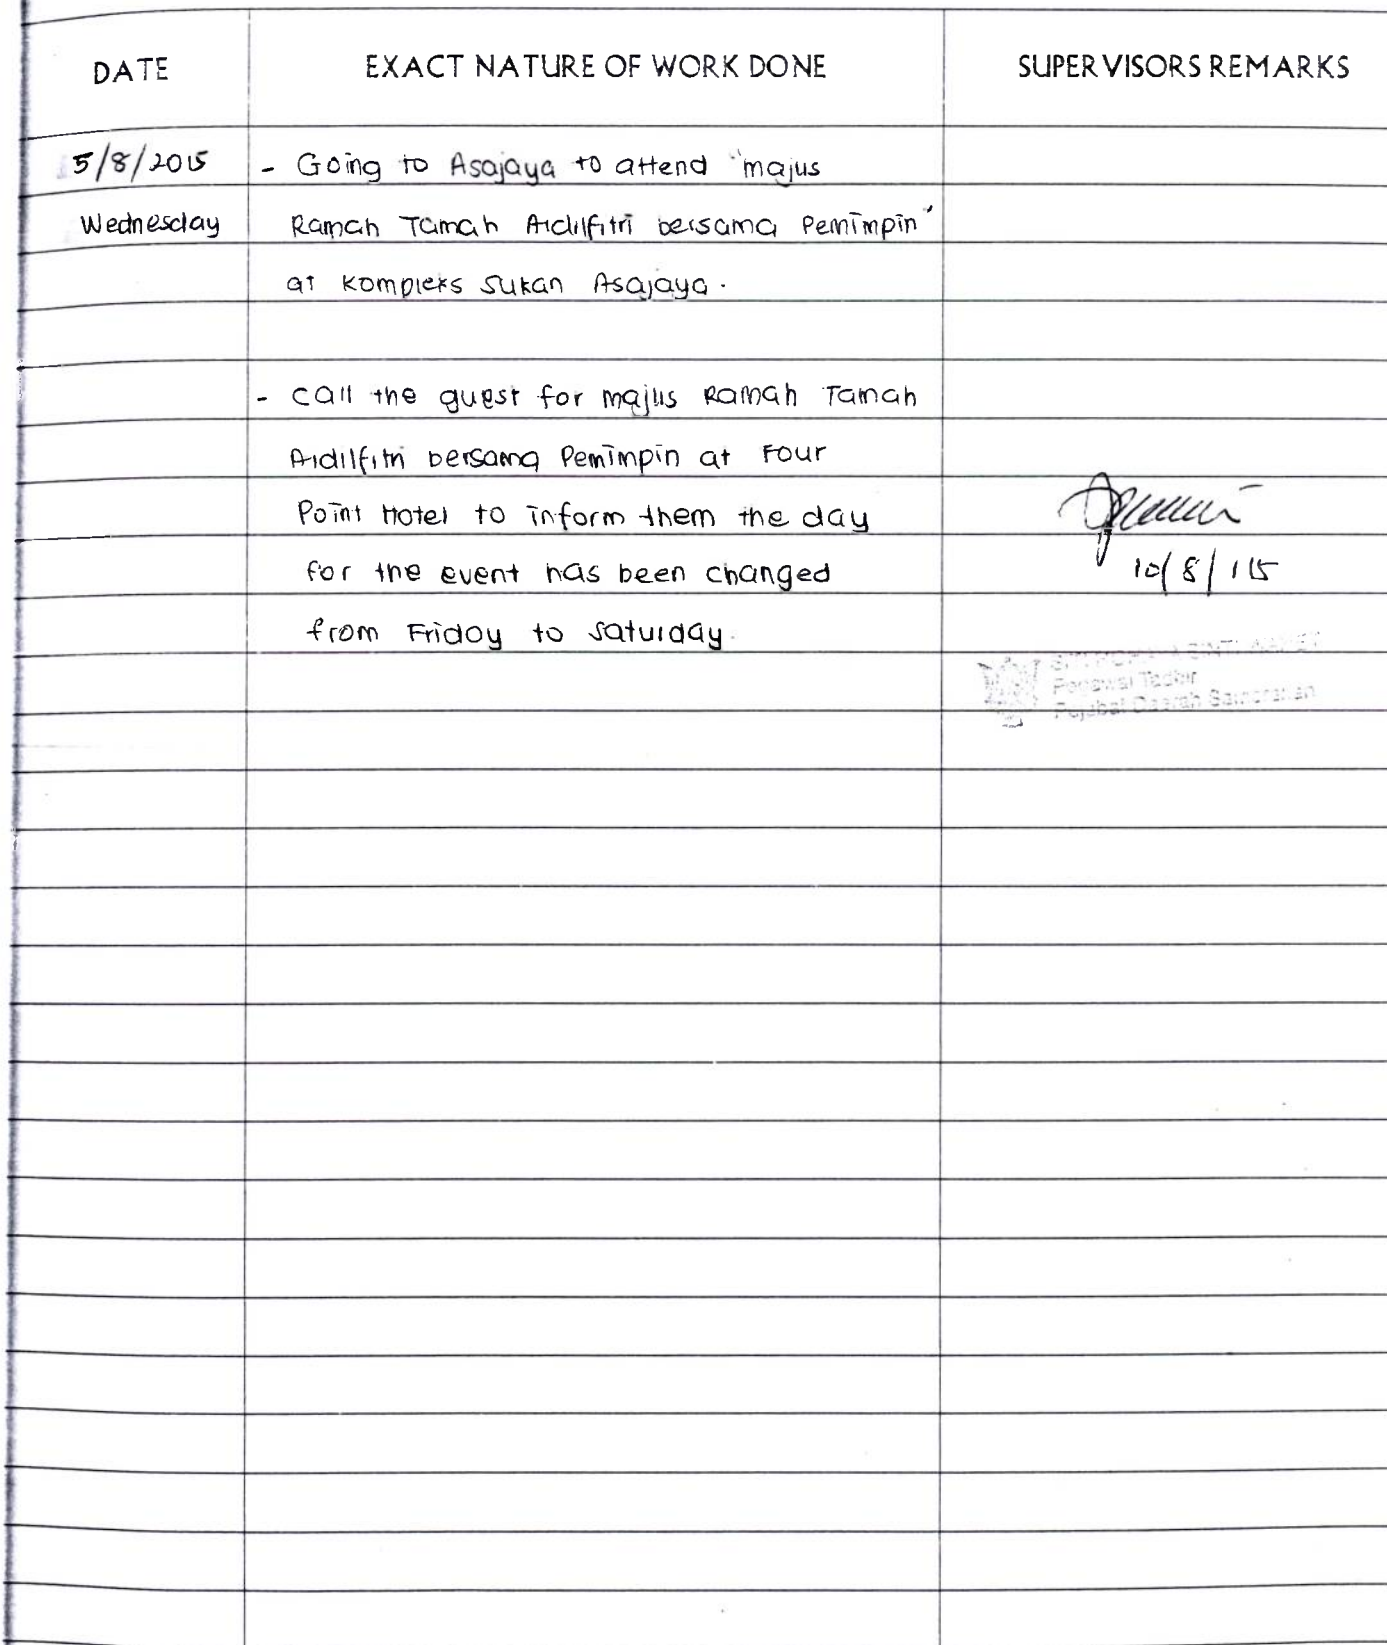 DATE EXACT NATURE OF WORK DONE SUPERVISORS REMARKS
5/8/2015 - Going to Asajaya to attend "majlis
Wednesday Ramah Tamah Aidilfitri bersama Pemimpin"
at Kompleks Sukan Asajaya.
- Call the guest for majlis Ramah Tamah
Aidilfitri bersama Pemimpin at Four
Point Hotel to inform them the day
for the event has been changed
10/8/15
from Friday to Saturday.
Pegawai Tadbir
Pejabat Daerah Samarahan